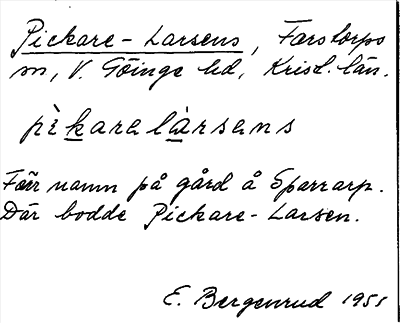 Pickare-Larsens, Farstorps
sn, V. Göinge hd, Krist. län.
pìkaralàrsens
Förr namn på gård å Sparrarp.
Där bodde Pickare-Larsen.
E. Bergenrud 1951